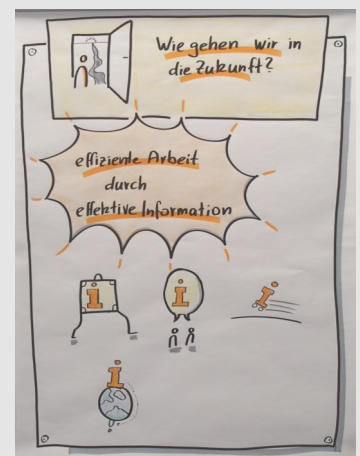 Wie gehen wir in
die Zukunft?
effiziente Arbeit
durch
effektive Information
i
i
i
i